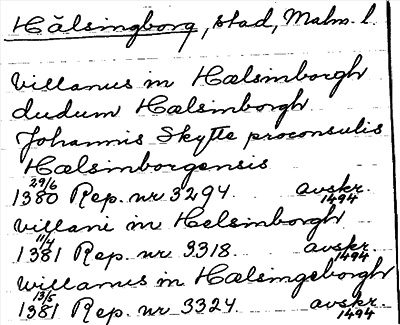 Hälsingborg, stad, Malm. l.
villanus in Hælsimborgh
dudum Hælsimborgh
Johannis Skytte proconsulis
Hælsimborgensis
29/6 1380 Rep. nr 3294. avskr. 1494
villani in Helsimborgh
11/4 1381 Rep. nr 3318. avskr. 1494
willanus in Hælsimgeborgh
13/5 1381 Rep. nr 3324 avskr. 1494